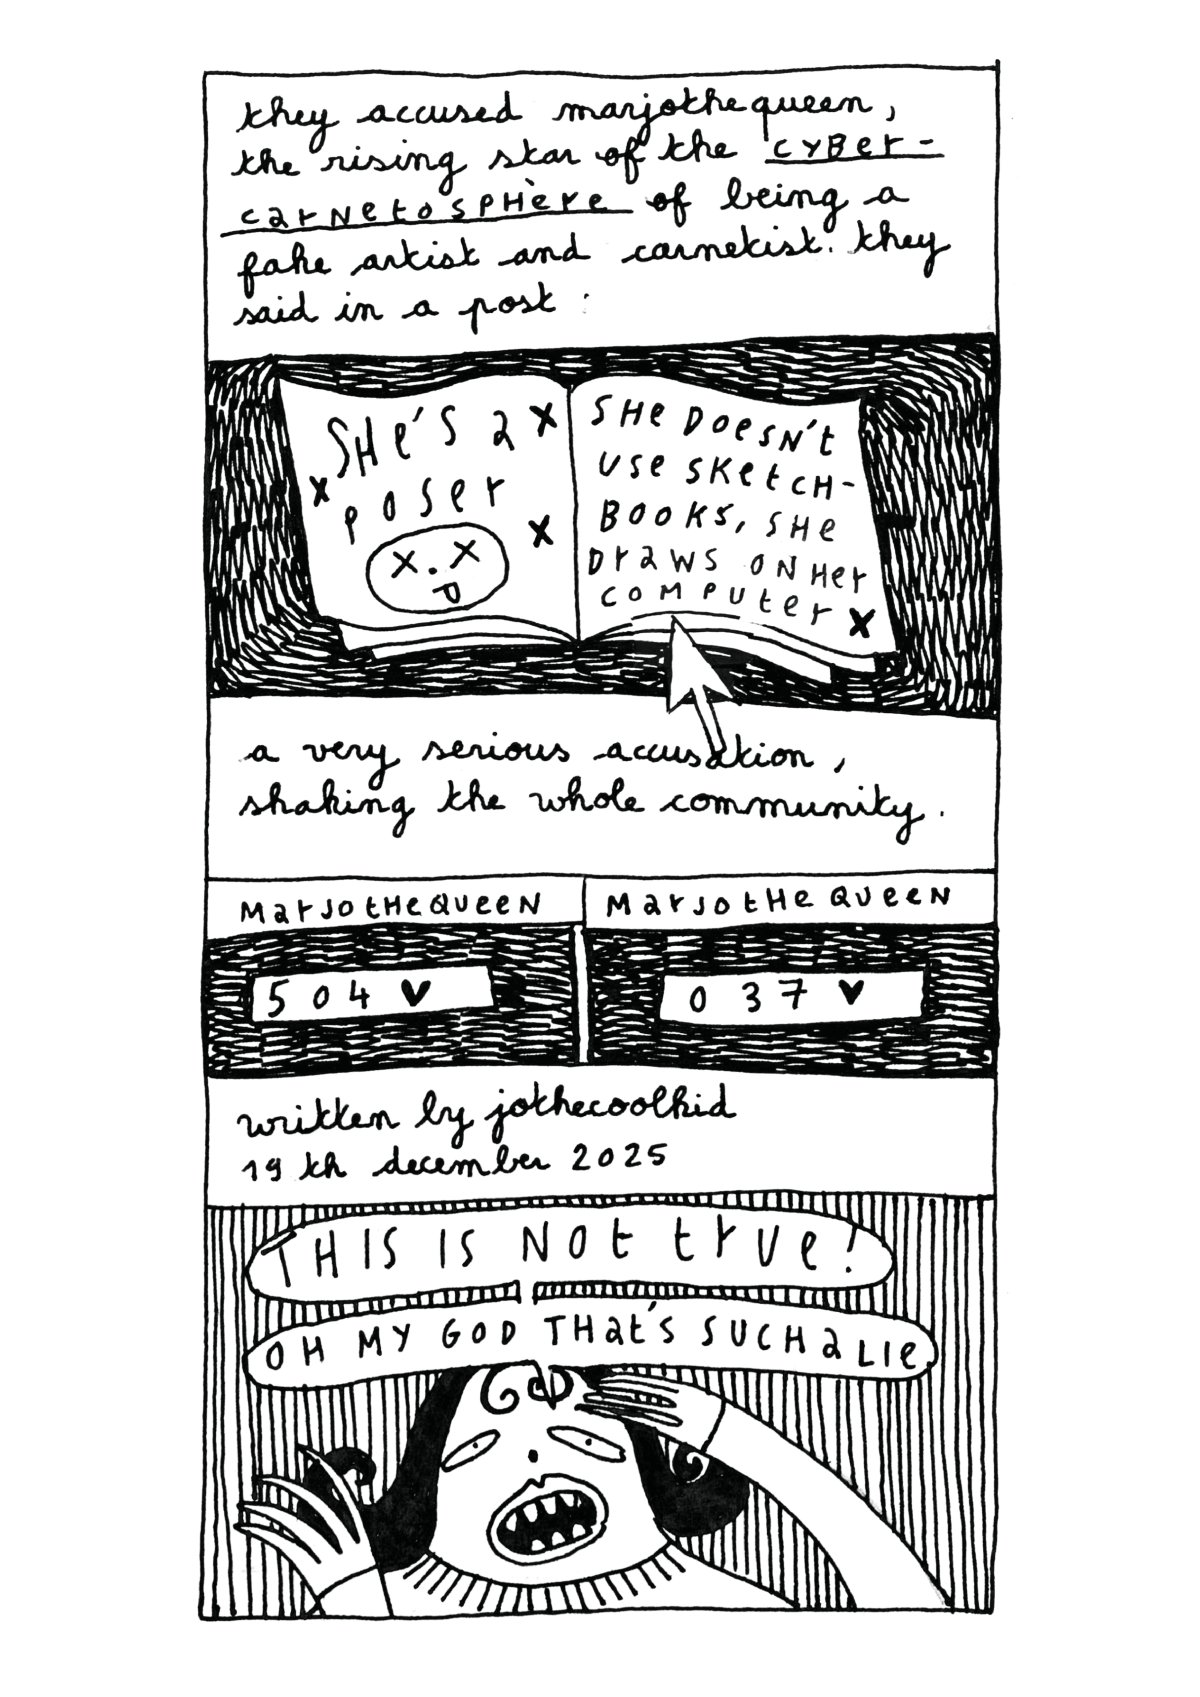 they accused marjothequeen,
the rising star of the cyber-
carnetosphère of being a
fake artist and carnetist. they
said in a post :
SHe'S a
POSer
SHe DOeSN't
USe SKetCH-
BOOKS, SHe
DraWS ON Her
COMPUter
a very serious accusation,
shaking the whole community.
MarJOtHeQUeeN
MarJOtHeQUeeN
504 ♥
037 ♥
written by jothecoolkid
19 th december 2025
THIS IS NOt trUe!
OH MY GOD THat'S SUCH a LIe